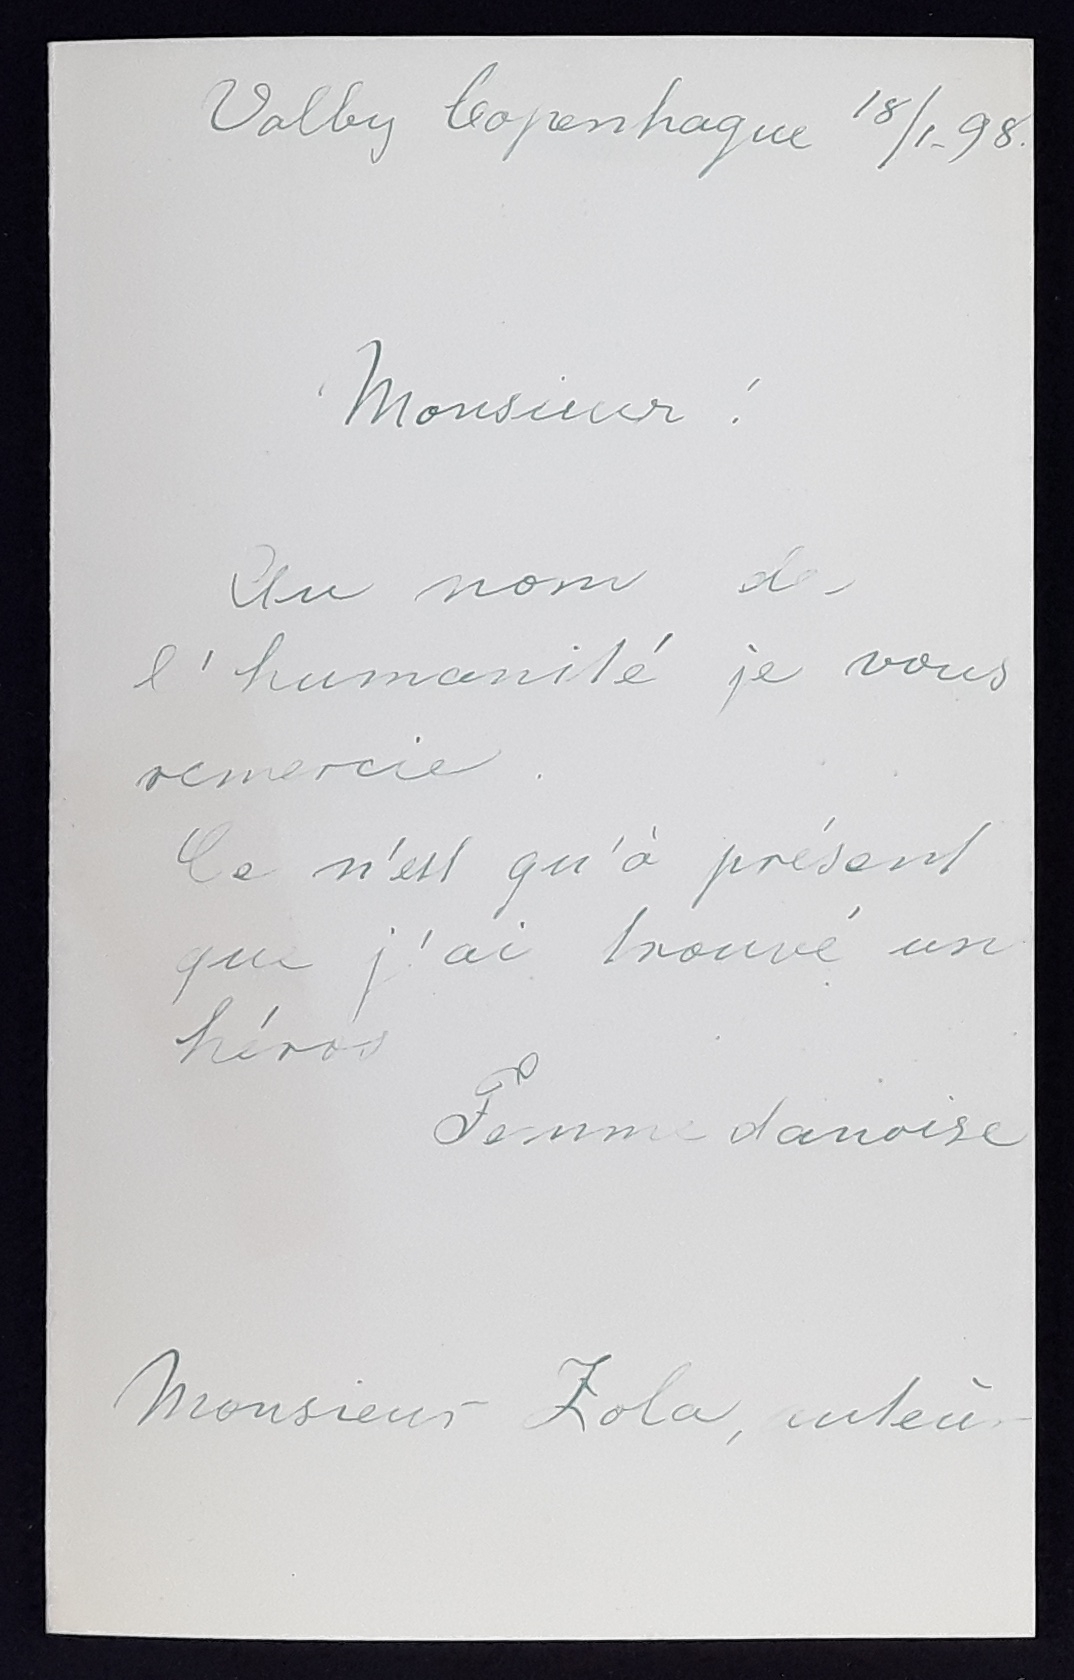 Valby Copenhague 18/1-98.
Monsieur!
Au nom de
l'humanité je vous
remercie.
Ce n'est qu'à présent
que j'ai trouvé un
héros
Femme danoise
Monsieur Zola, auteur